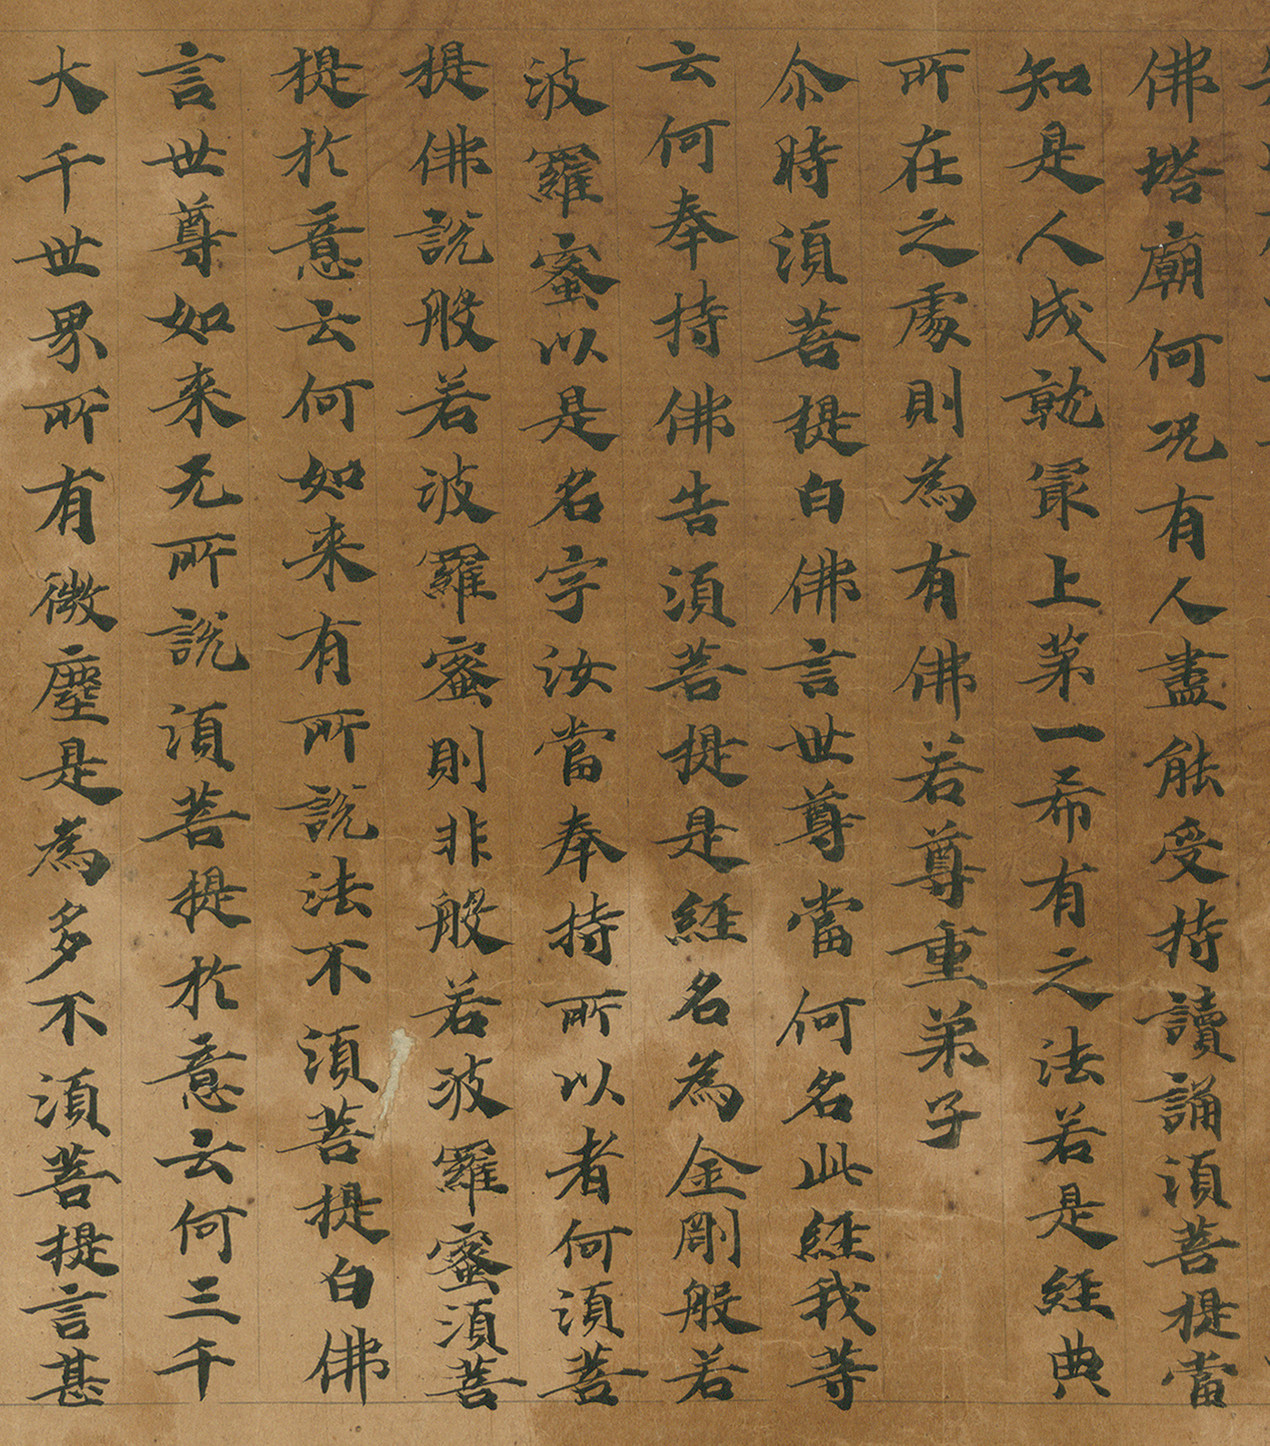 佛塔廟何況有人盡能受持讀誦湏菩提當
知是人成就㝡上苐一希有之法若是經典
所在之處則為有佛若尊重弟子
尒時湏菩提白佛言世尊當何名此經我等
云何奉持佛告湏菩提是經名為金剛般若
波羅蜜以是名字汝當奉持所以者何湏菩
提佛說般若波羅蜜則非般若波羅蜜湏菩
提於意云何如来有所說法不湏菩提白佛
言世尊如来无所說湏菩提於意云何三千
大千世界所有微塵是為多不湏菩提言甚